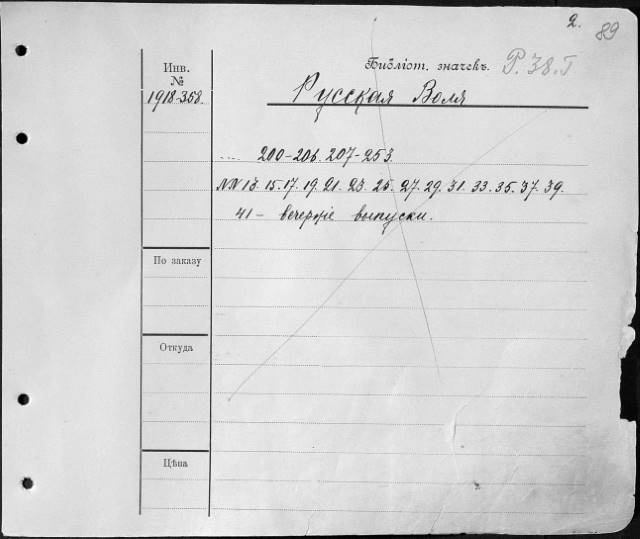 2. 89
Библіот. значекъ. P. 38. T
Инв.
№
1918-358.
Русская Воля
200-206. 207-253.
NN 13. 15. 17. 19. 21. 23. 25. 27. 29. 31. 33. 35. 37. 39.
41 - вечернiе выпуски.
По заказу
Откуда
Цѣна